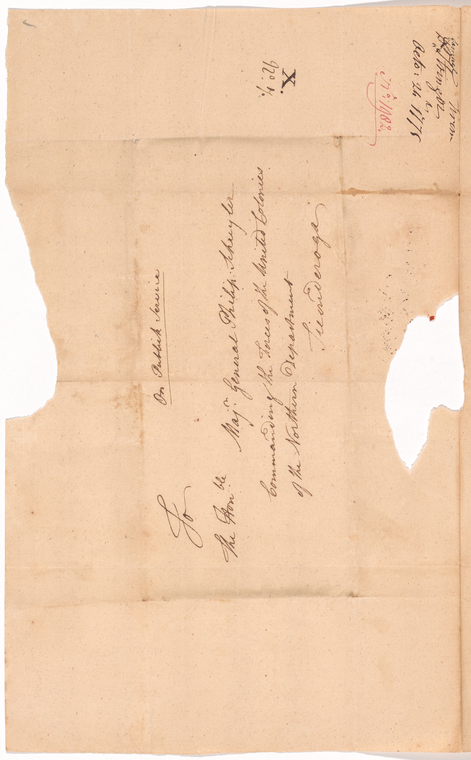 On Publick Service
To
The Hon.ble Maj.r General Philip Schuyler
Commanding the Forces of the United Colonies
of the Northern Department
Ticonderoga
X.
No. 4.
No. 1982
from
Octo. 26. 1775